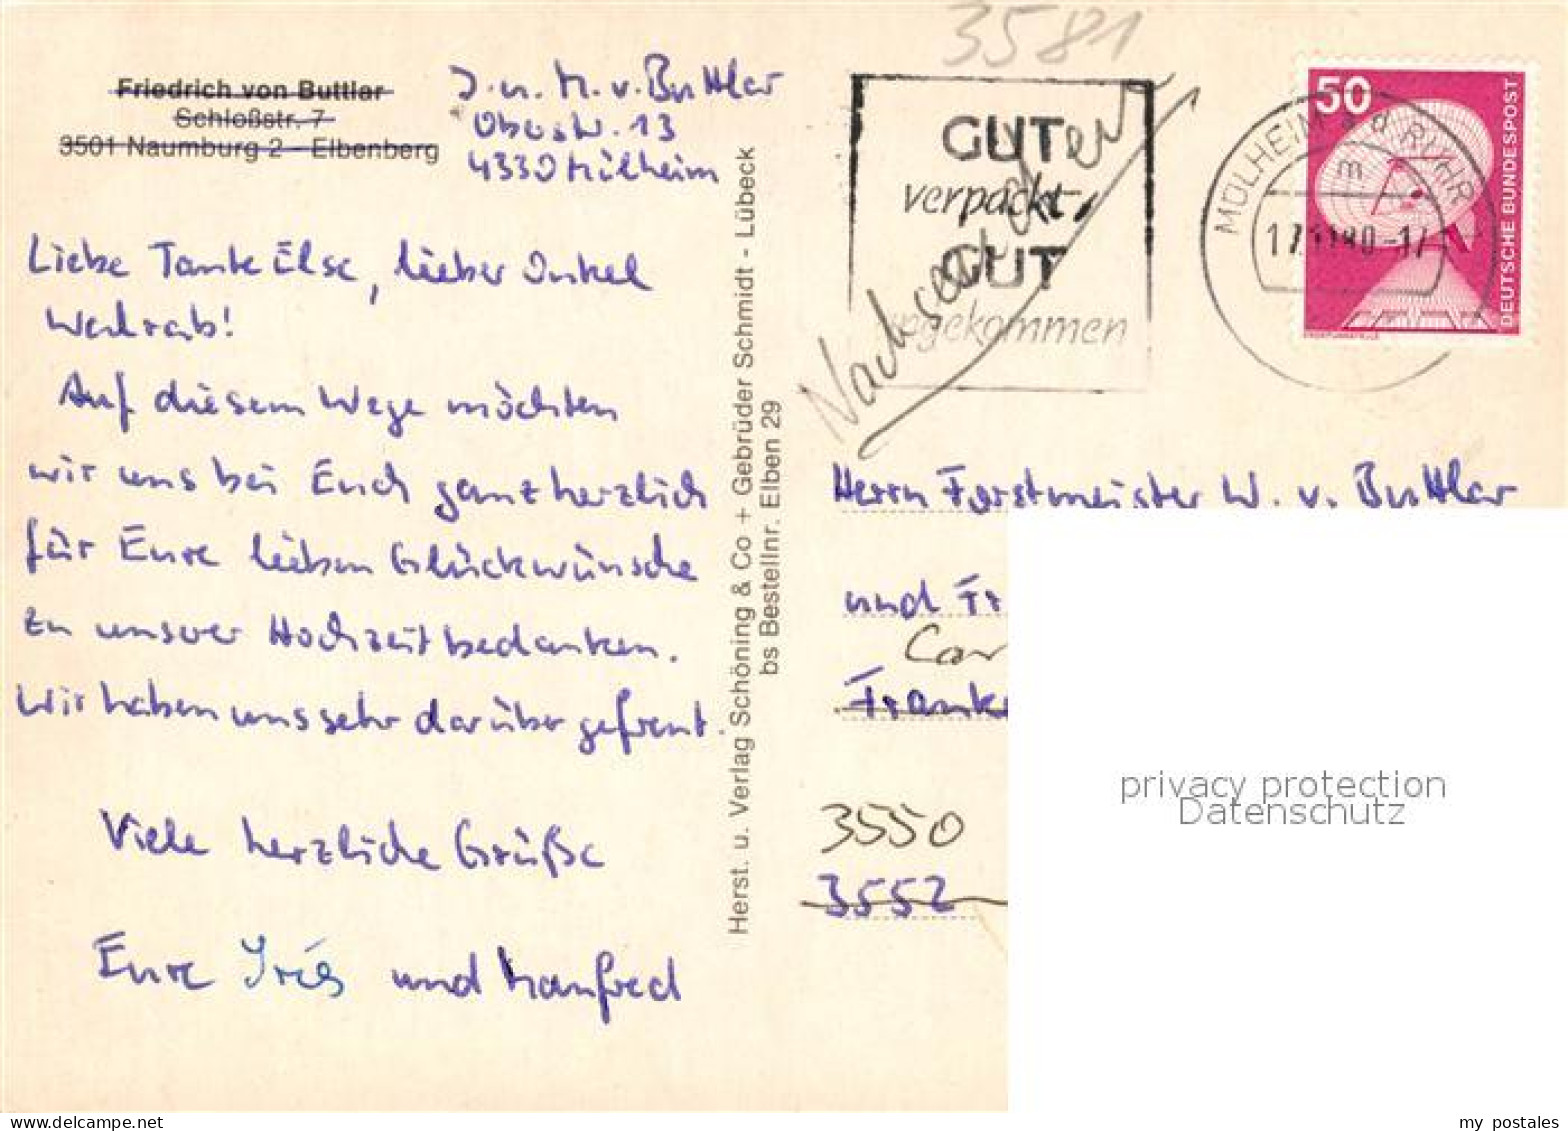 3581
Friedrich von Buttlar
Schloßstr. 7
3501 Naumburg 2 - Elbenberg
J. u. M. v. Buttlar
Oberstr. 13
4330 Mülheim
Liebe Tante Else, lieber Onkel
Weltrab!
Auf diesem Wege möchten
wir uns bei Euch ganz herzlich
für Eure lieben Glückwünsche
zu unserer Hochzeit bedanken.
Wir haben uns sehr darüber gefreut.
Viele herzliche Grüße
Eure Iris und Manfred
Herst. u. Verlag Schöning & Co + Gebrüder Schmidt - Lübeck
bs Bestellnr. Elben 29
GUT
verpackt,
GUT
angekommen
Nachsenden
MÜLHEIM a d RUHR
m
50
DEUTSCHE BUNDESPOST
Herrn Forstmeister W. v. Buttlar
und Fr
Car
Frank
3550
3552
privacy protection
Datenschutz
www.delcampe.net
my_postales